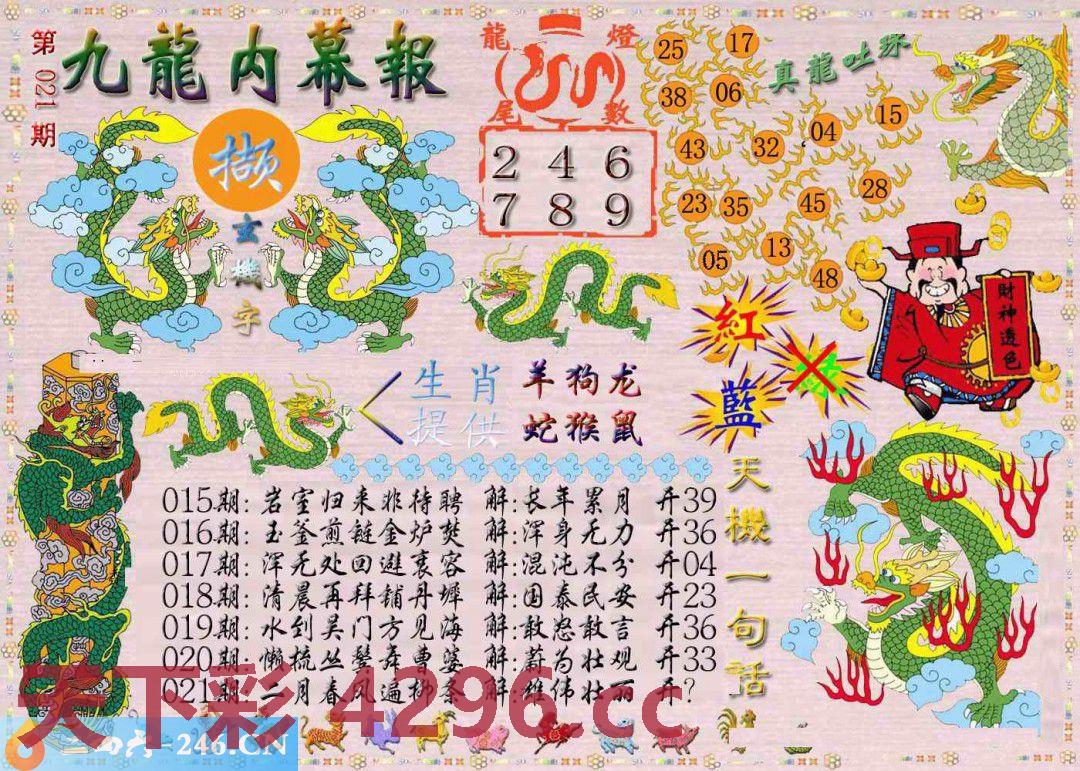 第021期
九龍内幕報
撷
玄機字
龍燈
尾數
2 4 6
7 8 9
真龍吐珠
25 17
38 06
43 32 04 15
23 35 45 28
05 13 48
財神透色
紅
藍
生肖 羊狗龙
提供 蛇猴鼠
天機一句話
015期: 岩室归来非待聘 解:长年累月 开39
016期: 玉釜煎链金炉焚 解:浑身无力 开36
017期: 浑无处回避衷容 解:混沌不分 开04
018期: 清晨再拜铺丹墀 解:国泰民安 开23
019期: 水到吴门方见海 解:敢怒敢言 开36
020期: 懒梳丛鬓舞曹婆 解:蔚为壮观 开33
021期: 二月春风遍柳条 解:雄伟壮丽 开?
天下彩 4296.cc
=246.CN